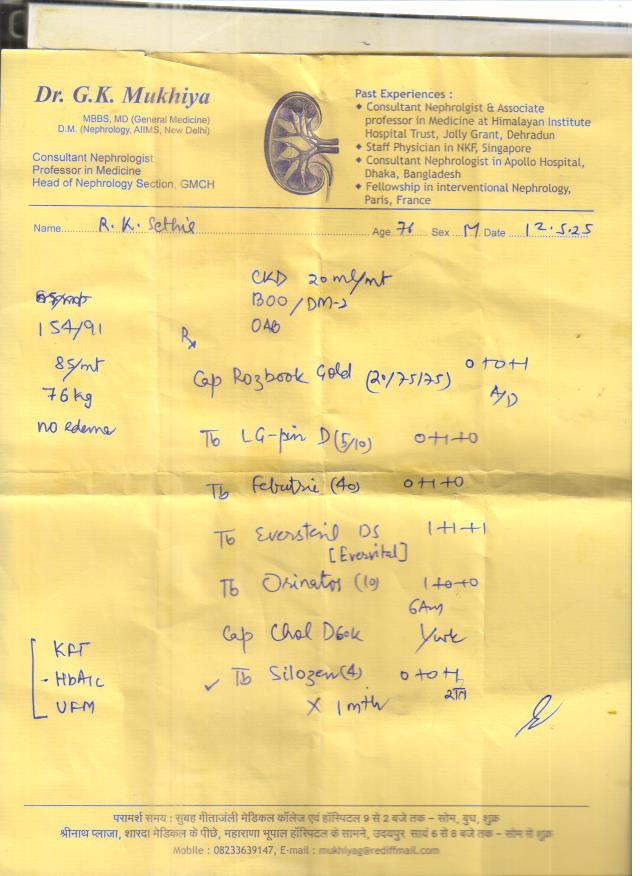 Dr. G.K. Mukhiya
MBBS, MD (General Medicine)
D.M. (Nephrology, AIIMS, New Delhi)
Consultant Nephrologist
Professor in Medicine
Head of Nephrology Section, GMCH
Past Experiences :
Consultant Nephrolgist & Associate
professor in Medicine at Himalayan Institute
Hospital Trust, Jolly Grant, Dehradun
Staff Physician in NKF, Singapore
Consultant Nephrologist in Apollo Hospital,
Dhaka, Bangladesh
Fellowship in interventional Nephrology,
Paris, France
Name R. K. Sethie Age 76 Sex M Date 12.5.25
CKD 20 ml/mt
BOO / DM-2
OAB
154/91
85/mt
76 kg
no edema
Rx
Cap Rozbook Gold (20/75/75) 0+0+1
A/D
Tb LG-pin D (5/10) 0+1+0
Tb Febutsie (40) 0+1+0
Tb Eversteril DS 1+1+1
[Evervital]
Tb Orinatos (10) 1+0+0
6Am
Cap Chol D60k
Tb Silozen (4) 0+0+1
रात्रि
X 1 mth
KFT
HbA1c
UFM
परामर्श समय : सुबह गीतांजली मेडिकल कॉलेज एवं हॉस्पिटल 9 से 2 बजे तक – सोम, बुध, शुक्र
श्रीनाथ प्लाजा, शारदा मेडिकल के पीछे, महाराणा भूपाल हॉस्पिटल के सामने, उदयपुर सायं 6 से 8 बजे तक – सोम से शुक्र
Mobile : 08233639147, E-mail : mukhiyag@rediffmail.com